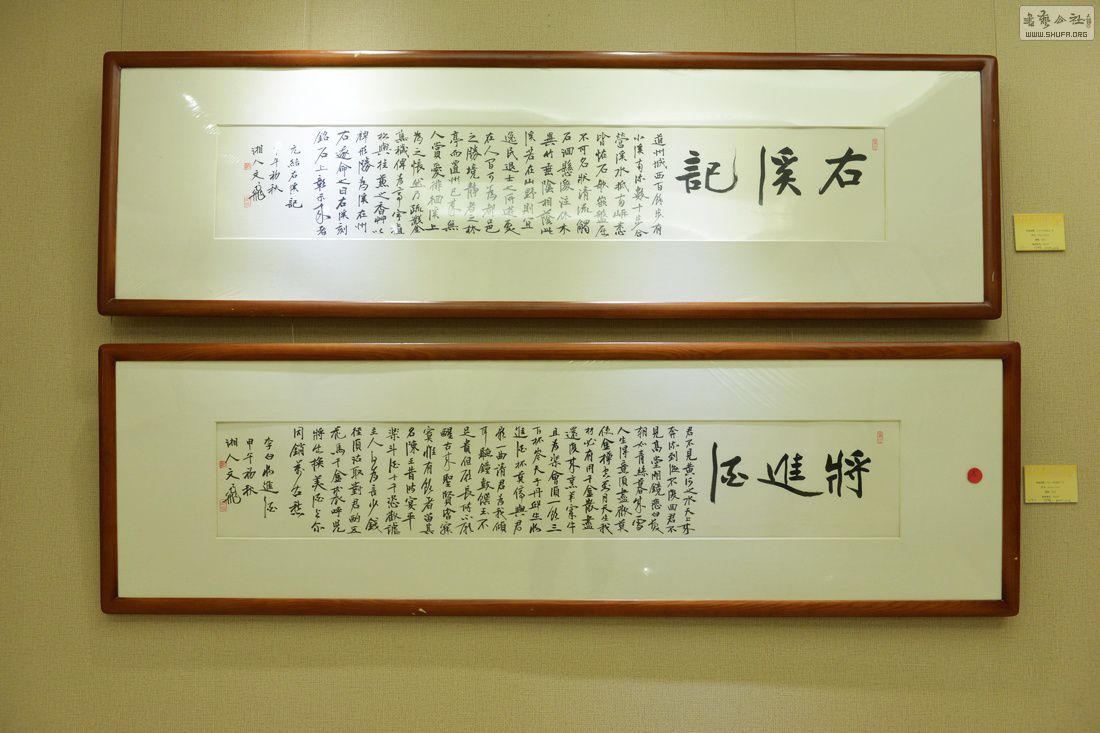 右溪記
道州城西百餘步有
小溪南流數十步合
營溪水抵兩岸悉
皆怪石欹嵌盤屈
不可名狀清流觸
石洄懸激注休木
異竹垂陰相蔭此
溪若在山野則宜
逸民退士之所遊處
在人間可為都邑
之勝境靜者之林
亭而置州已來無
人賞愛徘徊溪上
為之悵然乃疏鑿
蕪穢俾為亭宇植
松與桂兼之香艸以
裨形勝為溪在州
右遂命之曰右溪刻
銘石上彰示來者
元結右溪記
甲午初秋
湘人文飛
將進酒
君不見黃河之水天上來
奔流到海不復回君不
見高堂明鏡悲白髮
朝如青絲暮成雪
人生得意須盡歡莫
使金樽空對月天生我
材必有用千金散盡
還復來烹羊宰牛
且為樂會須一飲三
百杯岑夫子丹丘生將
進酒杯莫停與君
歌一曲請君為我傾
耳聽鐘鼓饌玉不
足貴但願長醉不願
醒古來聖賢皆寂
寞惟有飲者留其
名陳王昔時宴平
樂斗酒十千恣歡謔
主人何為言少錢
徑須沽取對君酌五
花馬千金裘呼兒
將出換美酒與爾
同銷萬古愁
李白將進酒
甲午初秋
湘人文飛
WWW.SHUFA.ORG